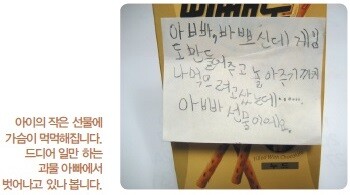 빼빼로
아빠, 바쁘신데 게임
도 만들어주고 놀아주기까지
나 먹으려고 샀는데……
아빠 선물이예요.
아이의 작은 선물에
가슴이 먹먹해집니다.
드디어 일만 하는
괴물 아빠에서
벗어나고 있나 봅니다.